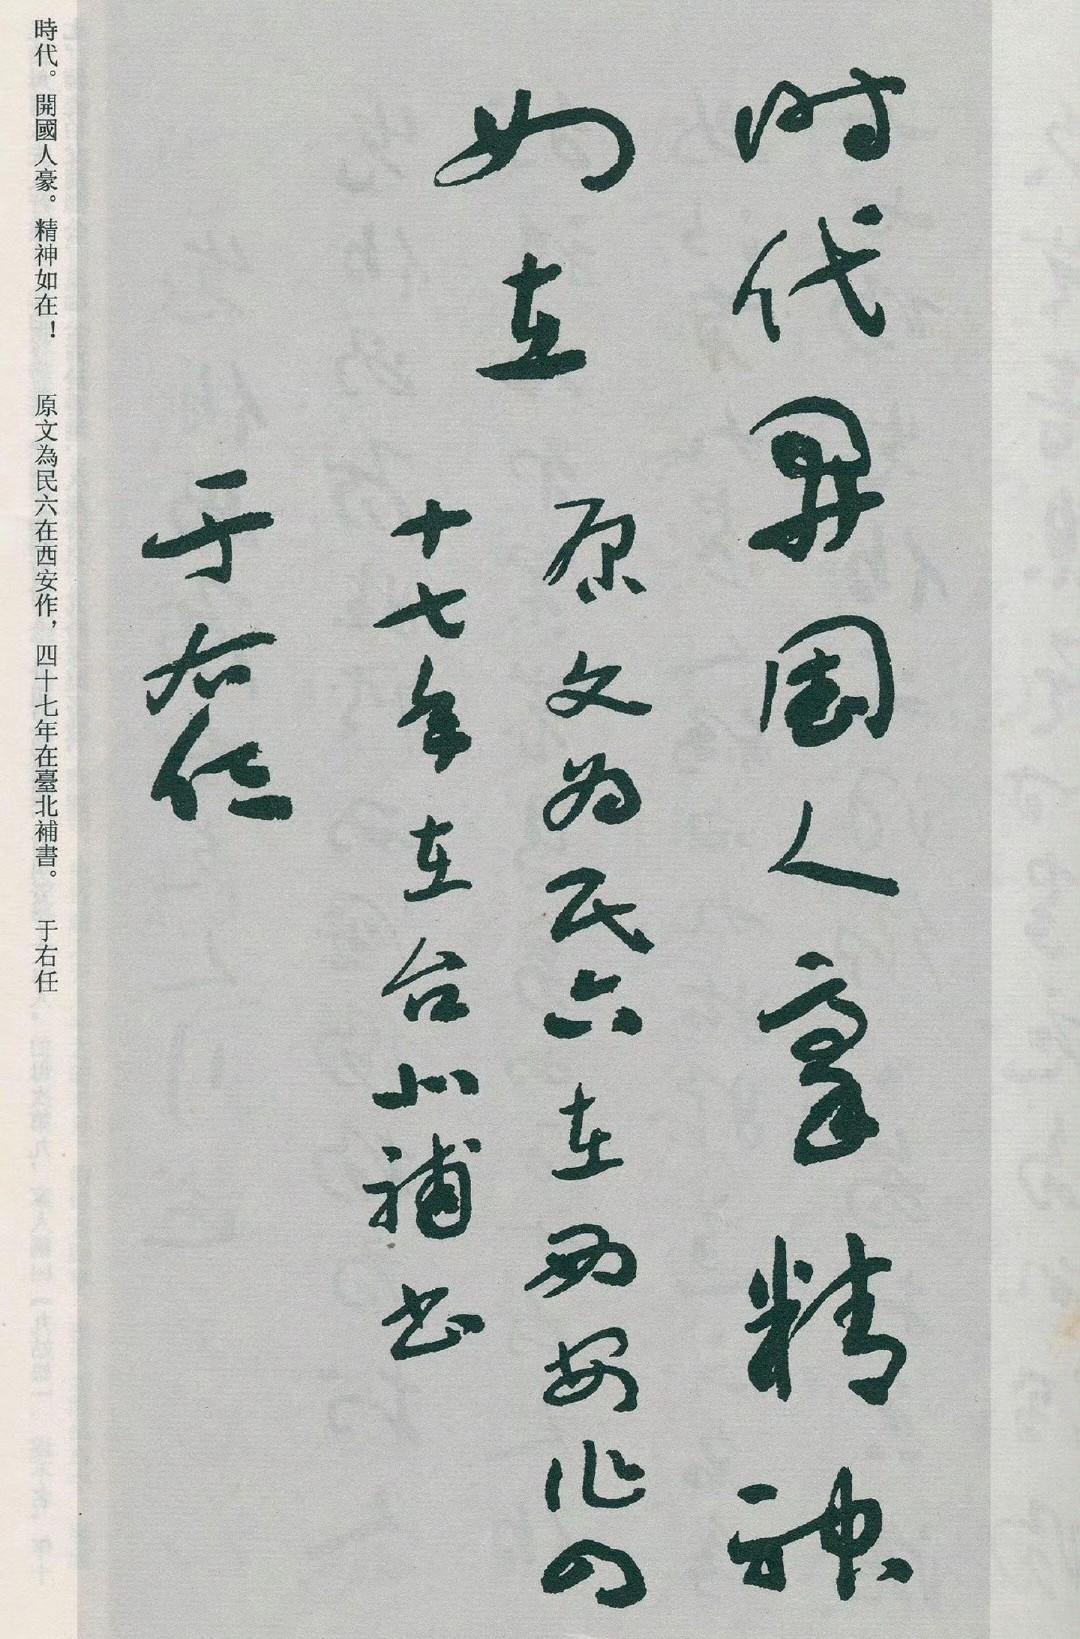 时代開國人豪精神
如在
原文为民六在西安作四
十七年在台北補书
于右任
時代。開國人豪。精神如在！　原文為民六在西安作，四十七年在臺北補書。　于右任